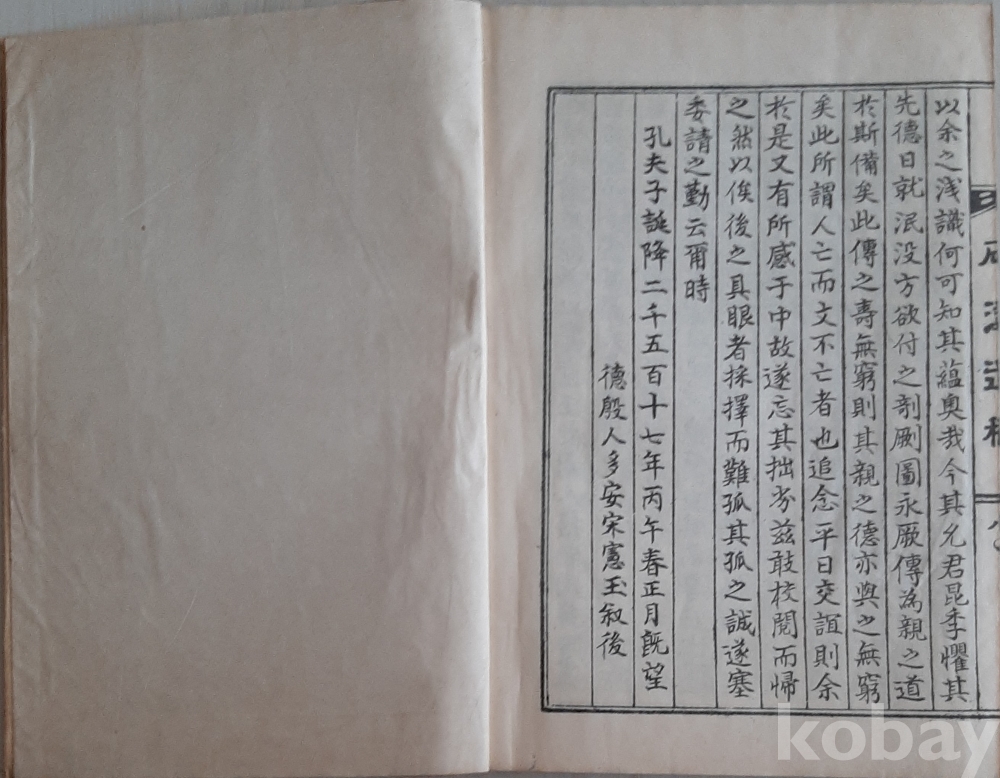 以余之浅識何可知其蘊奥哉今其允君昆季懼其
先德日就泯没方欲付之剞劂圖永厥傳為親之道
於斯備矣此傳之壽無窮則其親之德亦與之無窮
矣此所謂人亡而文不亡者也追念平日交誼則余
於是又有所感于中故遂忘其拙劣茲敢校閱而歸
之然以俟後之具眼者採擇而難孤其孤之誠遂塞
委請之勤云爾時
孔夫子誕降二千五百十七年丙午春正月旣望
德殷人多安宋憲玉敘後
kobay